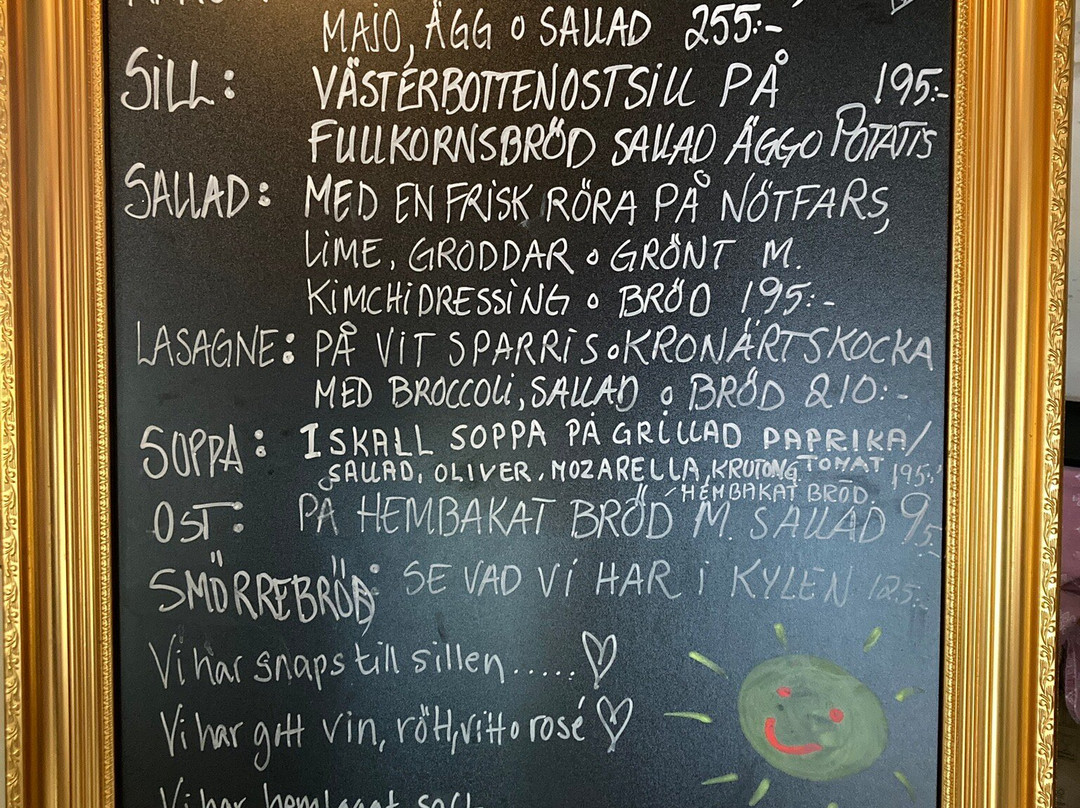 MAJO, ÄGG o SALLAD 255:-
SILL: VÄSTERBOTTENOSTSILL PÅ 195:-
FULLKORNSBRÖD SALLAD ÄGG o POTATIS
SALLAD: MED EN FRISK RÖRA PÅ NÖTFARS,
LIME, GRODDAR o GRÖNT M.
KIMCHIDRESSING o BRÖD 195:-
LASAGNE: PÅ VIT SPARRIS o KRONÄRTSKOCKA
MED BROCCOLI, SALLAD o BRÖD 210:-
SOPPA: ISKALL SOPPA PÅ GRILLAD PAPRIKA/
TOMAT
SALLAD, OLIVER, MOZARELLA, KRUTONG 195:-
HEMBAKAT BRÖD.
OST: PÅ HEMBAKAT BRÖD M. SALLAD 95:-
SMÖRREBRÖD: SE VAD VI HAR I KYLEN 125:-
Vi har snaps till sillen.....
Vi har gott vin, rött, vitt o rosé
Vi har hemlagat